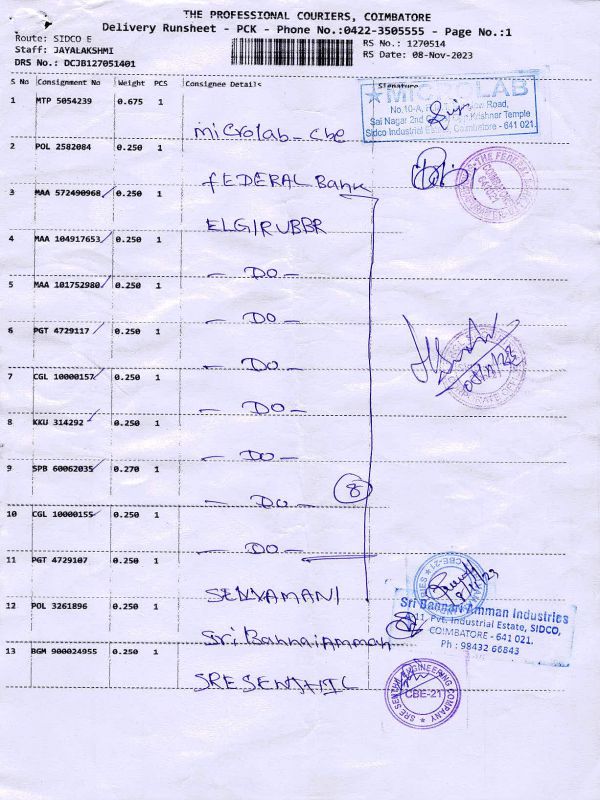 THE PROFESSIONAL COURIERS, COIMBATORE
Delivery Runsheet - PCK - Phone No.:0422-3505555 - Page No.:1
Route: SIDCO E
RS No.: 1270514
Staff: JAYALAKSHMI
RS Date: 08-Nov-2023
DRS No.: DCJB127051401
S No Consignment No Weight PCS Consignee Details Signature
1 MTP 5054239 0.675 1 microlab - cbe
MICROLAB
Sai Nagar 2nd Krishnar Temple
Sidco Industrial Estate, Coimbatore - 641 021.
2 POL 2582084 0.250 1 FEDERAL Bank
3 MAA 572490968 0.250 1 ELGIRUBBR
4 MAA 104917653 0.250 1 - DO -
5 MAA 101752980 0.250 1 - DO -
6 PGT 4729117 0.250 1 - DO -
7 CGL 10000157 0.250 1 - DO -
8 KKU 314292 0.250 1 - DO -
9 SPB 60062035 0.270 1 - DO - 8
10 CGL 10000155 0.250 1 - DO -
11 PGT 4729107 0.250 1
12 POL 3261896 0.250 1 Sri BannaiAmman
CBE-21
Sri Bannari Amman Industries
Pvt. Industrial Estate, SIDCO,
COIMBATORE - 641 021.
Ph : 98432 66843
13 BGM 900024955 0.250 1 SRE SENTHIL
SRE SENTHIL ENGINEERING COMPANY
CBE-21